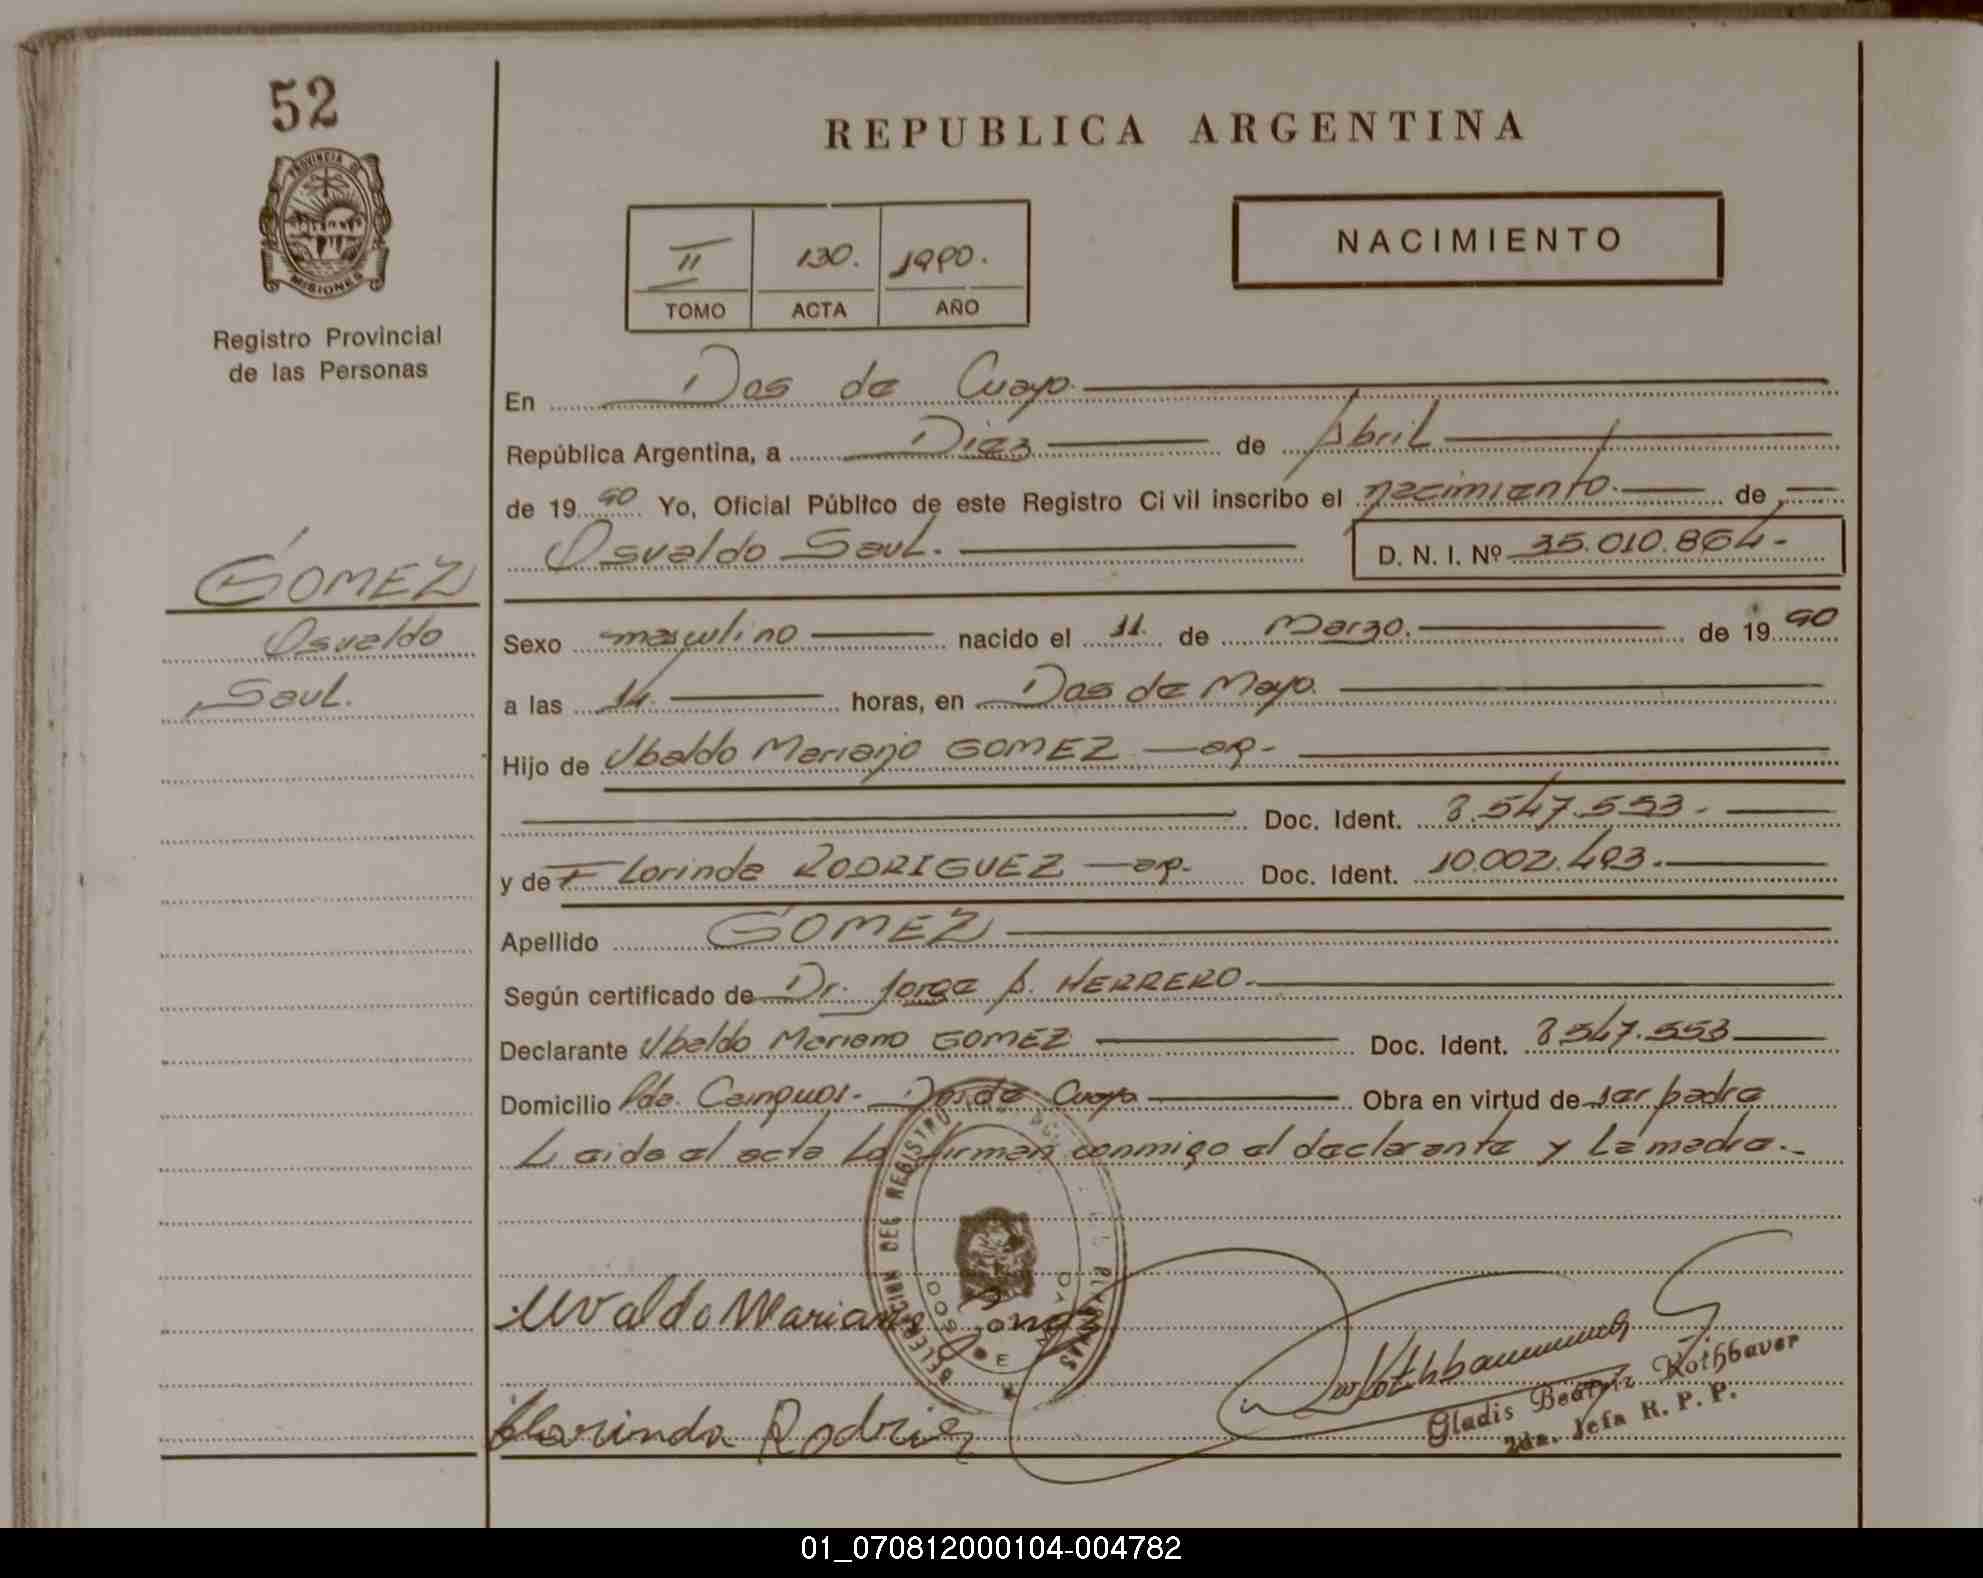 52
REPUBLICA ARGENTINA
PROVINCIA DE
MISIONES
Registro Provincial
de las Personas
II 130. 1990.
TOMO ACTA AÑO
NACIMIENTO
En Dos de Mayo.
República Argentina, a Diez de Abril
de 1990 Yo, Oficial Público de este Registro Civil inscribo el nacimiento. de
Osvaldo Saul. D. N. I. Nº 35.010.864-
GOMEZ
Osvaldo
Saul.
Sexo masculino nacido el 11. de Marzo. de 1990
a las 14. horas, en Dos de Mayo.
Hijo de Ubaldo Mariano GOMEZ —ar-
Doc. Ident. 8.547.553.
y de Florinda RODRIGUEZ —ar. Doc. Ident. 10.002.493.
Apellido GOMEZ
Según certificado de Dr. Jorge A. HERRERO.
Declarante Ubaldo Mariano GOMEZ Doc. Ident. 8547.553
Domicilio Pde. Dos de Mayo Obra en virtud de ser padre
Leida el acta la firman conmigo el declarante y la madre.-
DELEGACION DEL REGISTRO
Uvaldo Mariano Gomez
Gladis Beatriz Rothbauer
2da. Jefa R. P. P.
Florinda
01_070812000104-004782